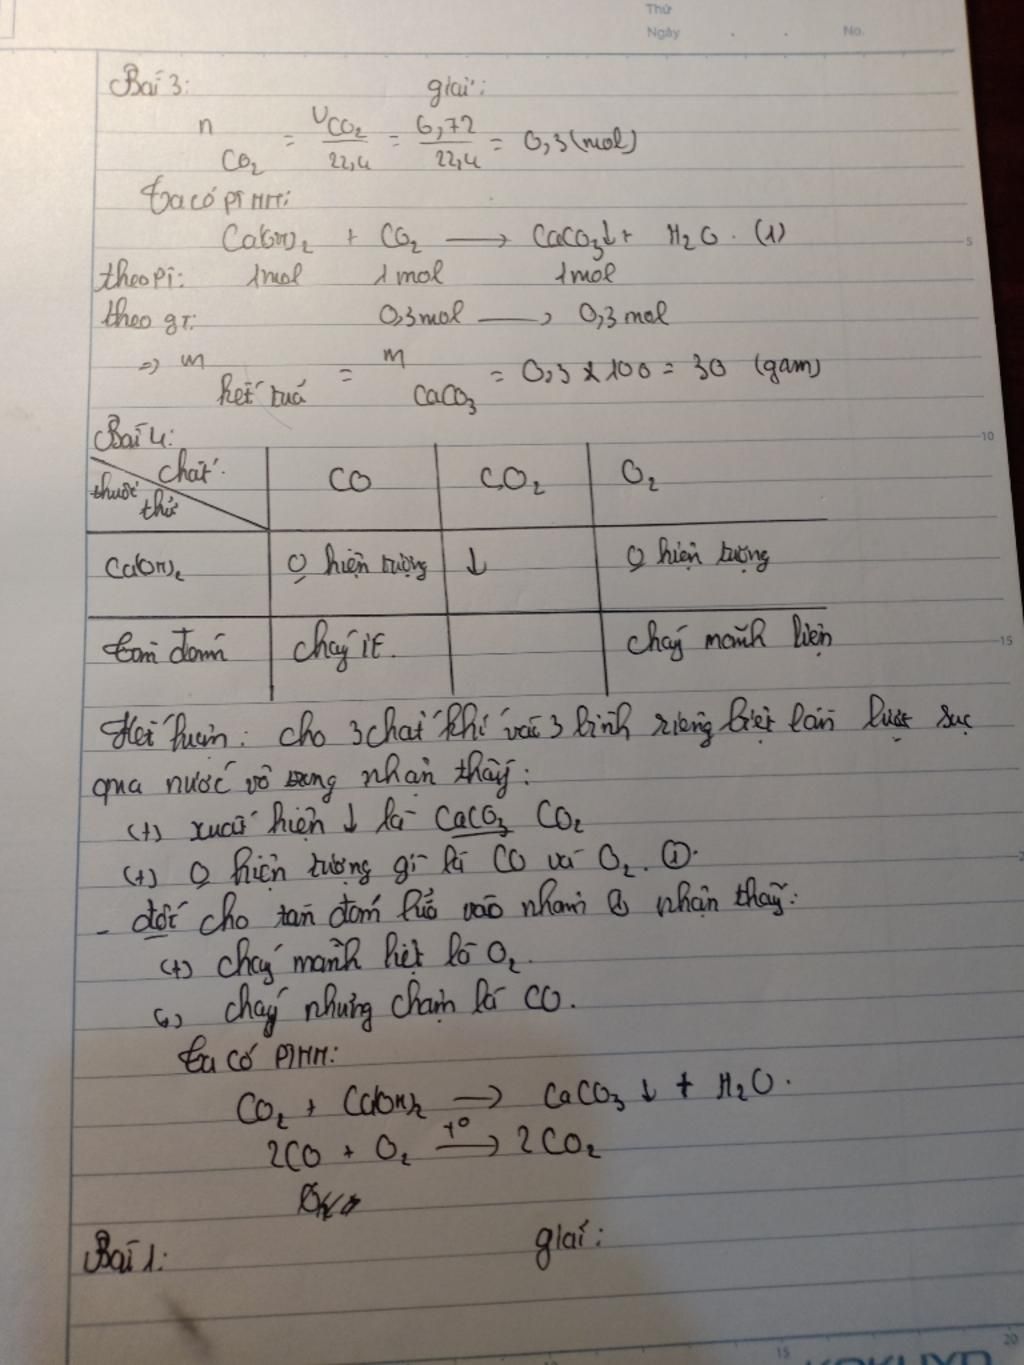 Thứ
Ngày . . No.
Bài 3: giải:
n CO₂ = VCO₂/22,4 = 6,72/22,4 = 0,3 (mol)
Ta có PTHH:
Ca(OH)₂ + CO₂ → CaCO₃↓ + H₂O. (1)
theo PT: 1mol 1mol 1mol
theo gt: 0,3mol → 0,3mol
=> m kết tủa = m CaCO₃ = 0,3 x 100 = 30 (gam)
Bài 4:
chất thuốc thử CO CO₂ O₂
Ca(OH)₂ O hiện tượng ↓ O hiện tượng
tàn đóm cháy ít. cháy mãnh liện
cho 3 chất khí vào 3 bình riêng biệt lần lượt sục
qua nước vôi trong nhận thấy:
(+) xuất hiện ↓ là CaCO₃ CO₂
(+) O hiện tượng gì là CO và O₂. ①.
- đốt cho tàn đóm đỏ vào nhóm ① nhận thấy:
(+) cháy mãnh liệt là O₂.
(+) cháy nhưng chậm là CO.
Ta có PTHH:
CO₂ + Ca(OH)₂ → CaCO₃ ↓ + H₂O.
2CO + O₂ →t° 2CO₂
Bài 1: giải: